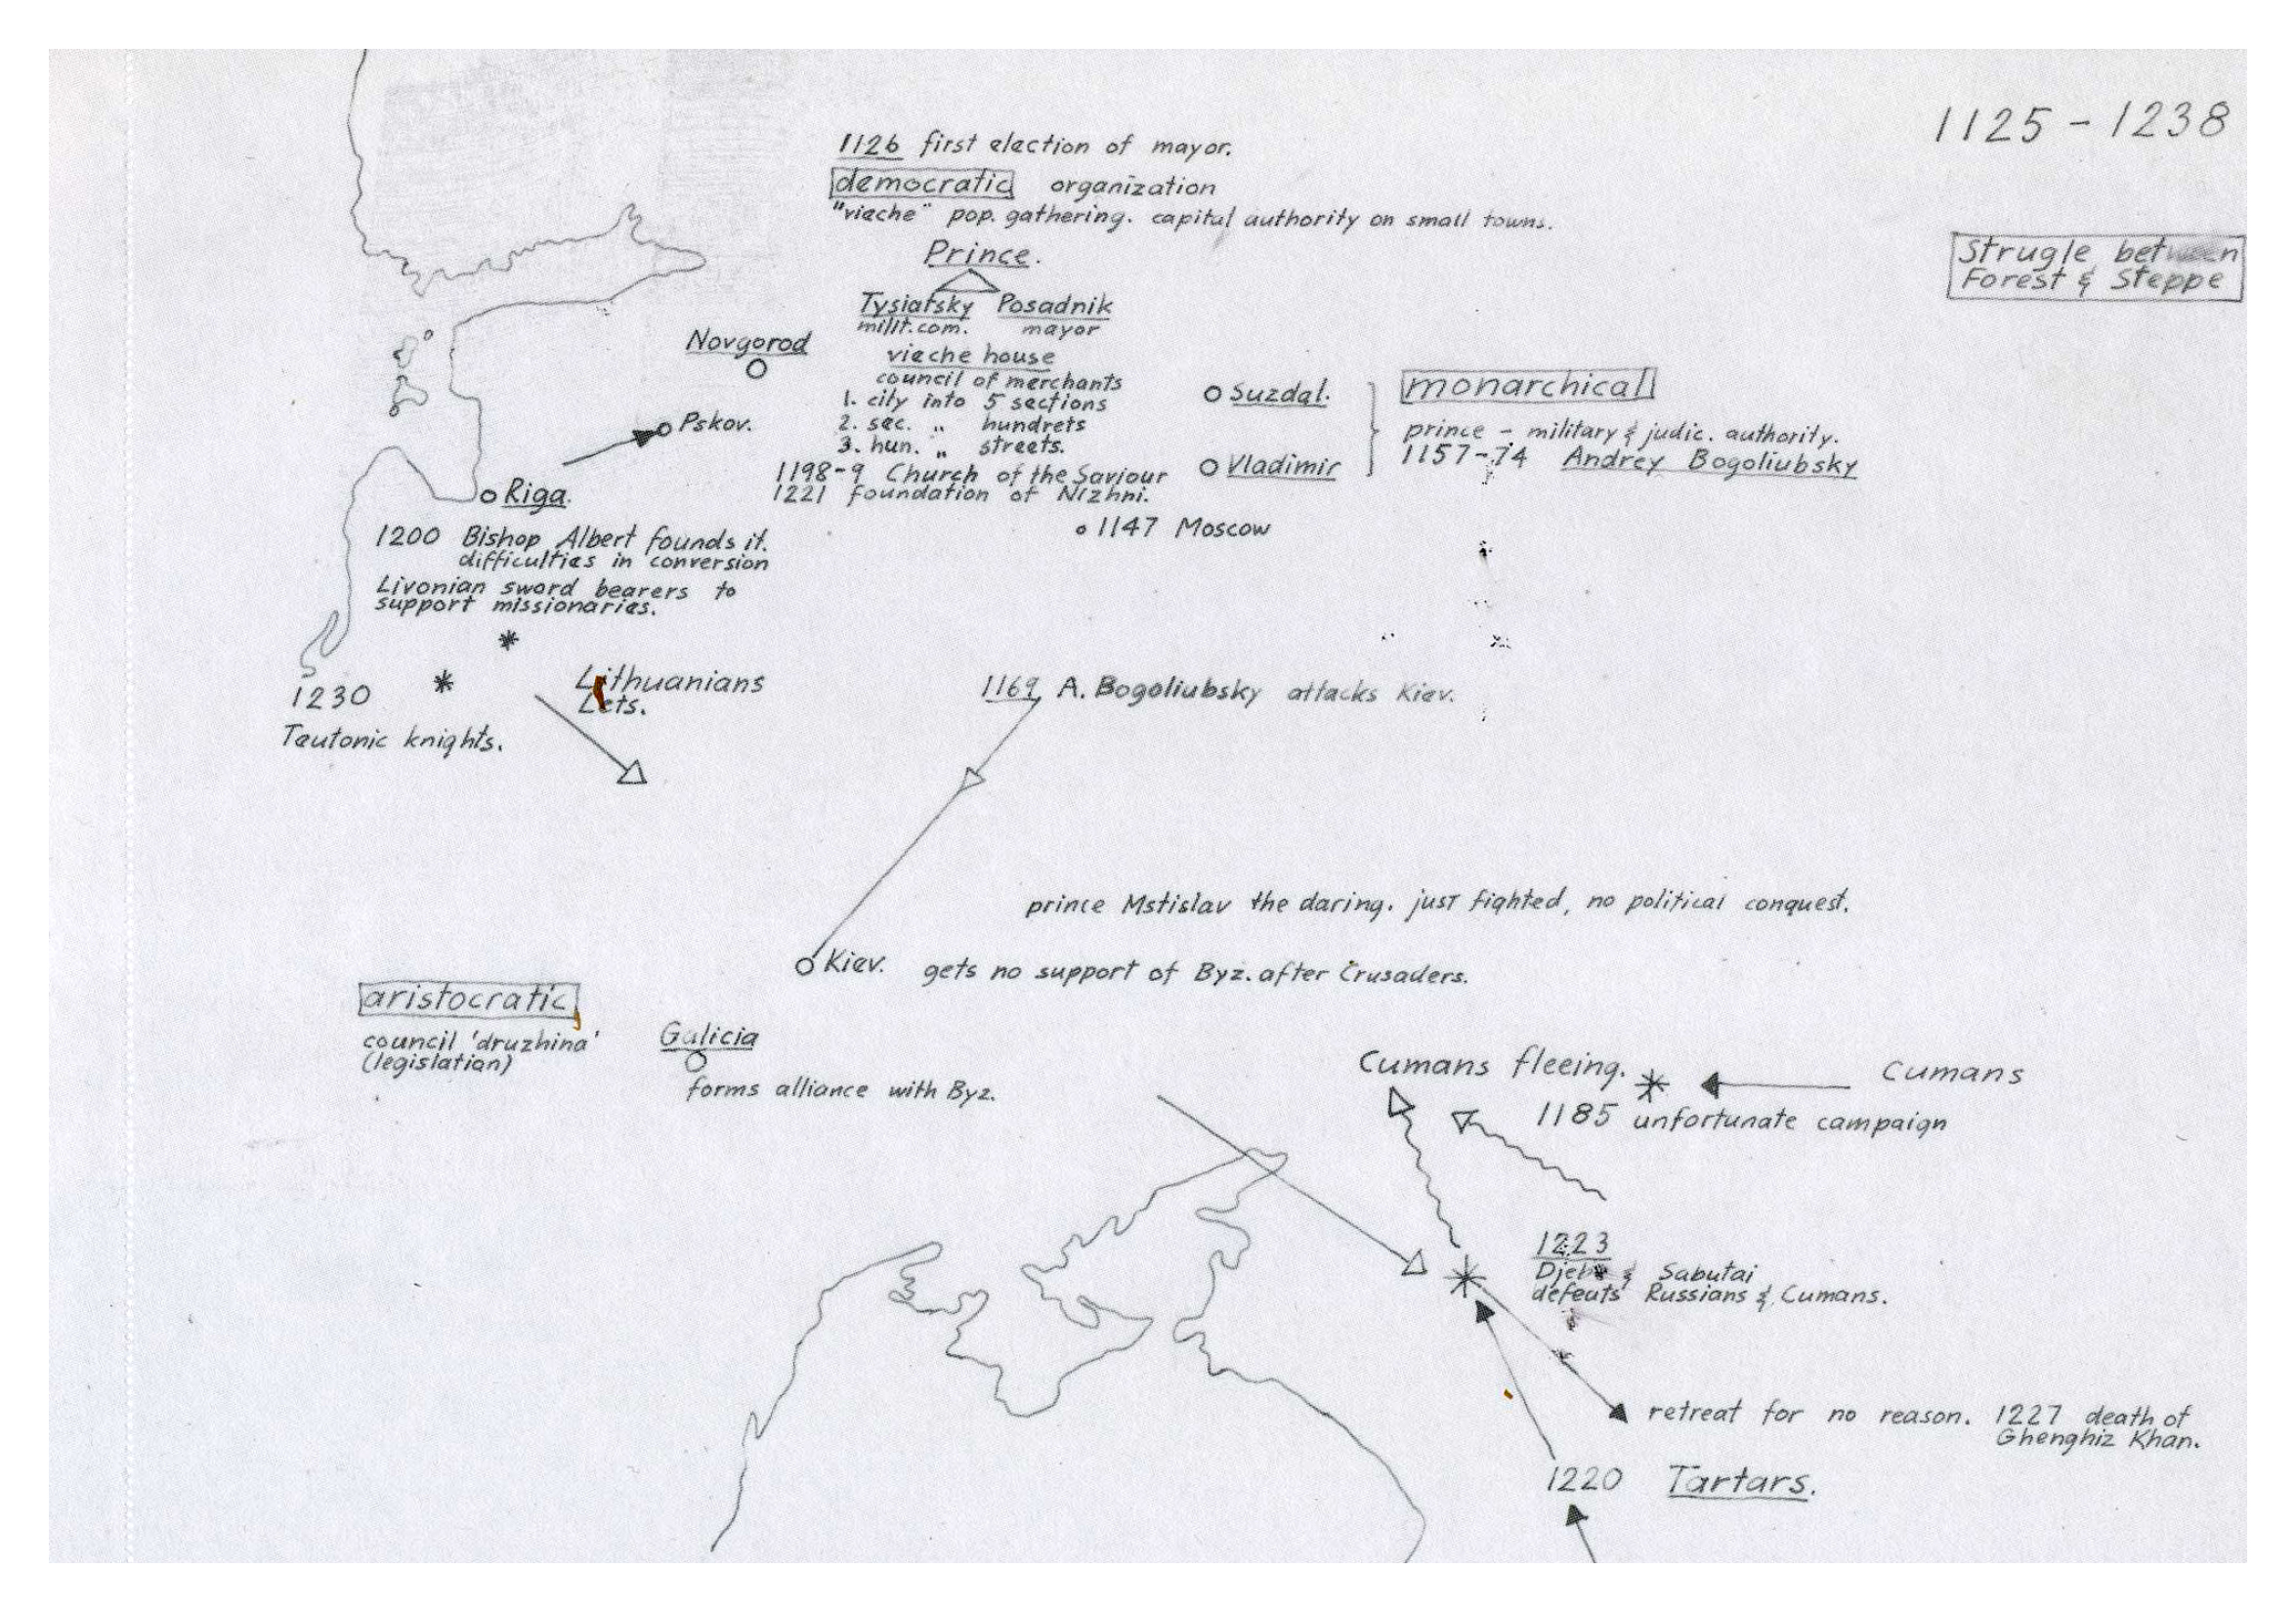 1125 - 1238
Strugle between
Forest & Steppe
1126 first election of mayor.
democratic organization
"vieche" pop. gathering. capital authority on small towns.
Prince.
Tysiatsky Posadnik
milit. com. mayor
vieche house
council of merchants
1. city into 5 sections
2. sec. " hundrets
3. hun. " streets.
1198-9 Church of the Saviour
1221 foundation of Nizhni.
Novgorod
Pskov.
Suzdal.
Vladimir
monarchical
prince - military & judic. authority.
1157-74 Andrey Bogoliubsky
1147 Moscow
Riga.
1200 Bishop Albert founds it.
difficulties in conversion
Livonian sword bearers to
support missionaries.
1230
Teutonic knights.
Lithuanians
Lets.
1169 A. Bogoliubsky attacks Kiev.
prince Mstislav the daring. just fighted, no political conquest.
Kiev. gets no support of Byz. after Crusaders.
aristocratic
council 'druzhina'
(legislation)
Galicia
forms alliance with Byz.
Cumans fleeing.
Cumans
1185 unfortunate campaign
1223
& Sabutai
defeats Russians & Cumans.
retreat for no reason. 1227 death of
Ghenghiz Khan.
1220 Tartars.